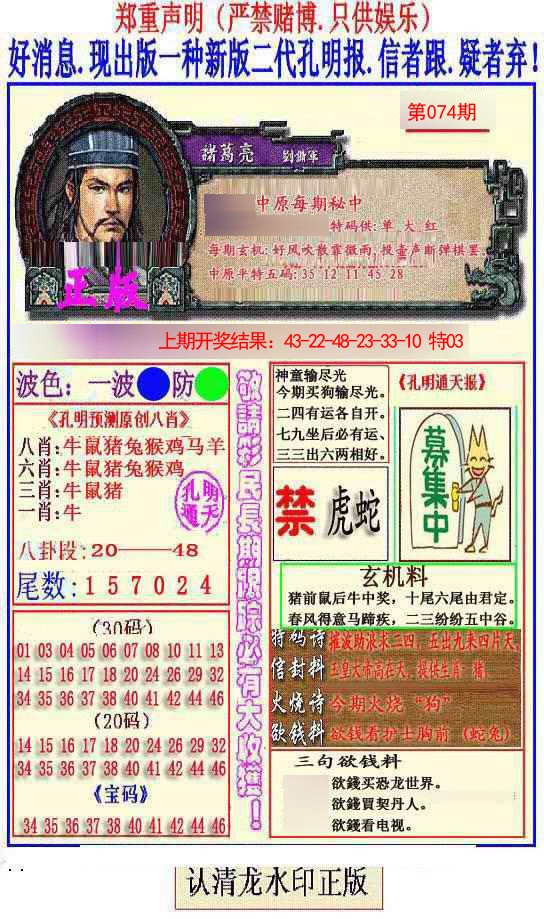 郑重声明（严禁赌博.只供娱乐）
好消息.现出版一种新版二代孔明报.信者跟.疑者弃!
第074期
諸葛亮 劉漸軍
中原每期秘中
特码供:单.大.红
每期玄机:好风吹散霏微雨,投壶声断弹棋罢
中原平特五码:35 12 11 45 28
正版
上期开奖结果：43-22-48-23-33-10 特03
波色：一波 防
《孔明预测原创八肖》
八肖:牛鼠猪兔猴鸡马羊
六肖:牛鼠猪兔猴鸡
三肖:牛鼠猪
一肖:牛
孔明通天
八卦段:20———48
尾数:157024
(30码)
01 03 04 05 06 07 08 10 11 13
14 15 16 17 18 20 24 26 29 32
34 35 36 37 38 40 41 42 44 46
(20码)
14 15 16 17 18 20 24 26 29 32
34 35 36 37 38 40 41 42 44 46
《宝码》
34 35 36 37 38 40 41 42 44 46
敬請彩民長期跟踪必有大收獲！
神童输尽光
今期买狗输尽光。
二四有运各自开。
七九坐后必有运、
三三出六两相好。
《孔明通天报》
禁 虎蛇
募集中
玄机料
猪前鼠后牛中奖，十尾六尾由君定。
春风得意马蹄疾，二三纷纷五中谷。
特码诗 摧波助浪求三四，五出九来四片天
信封料 玉皇大帝高在天，提供生肖：猪,
火烧诗 今期火烧“狗”
欲钱料 欲钱看护士胸前（蛇兔）
三句欲钱料
欲錢买恐龙世界。
欲錢買契丹人。
欲錢看电视。
认清龙水印正版